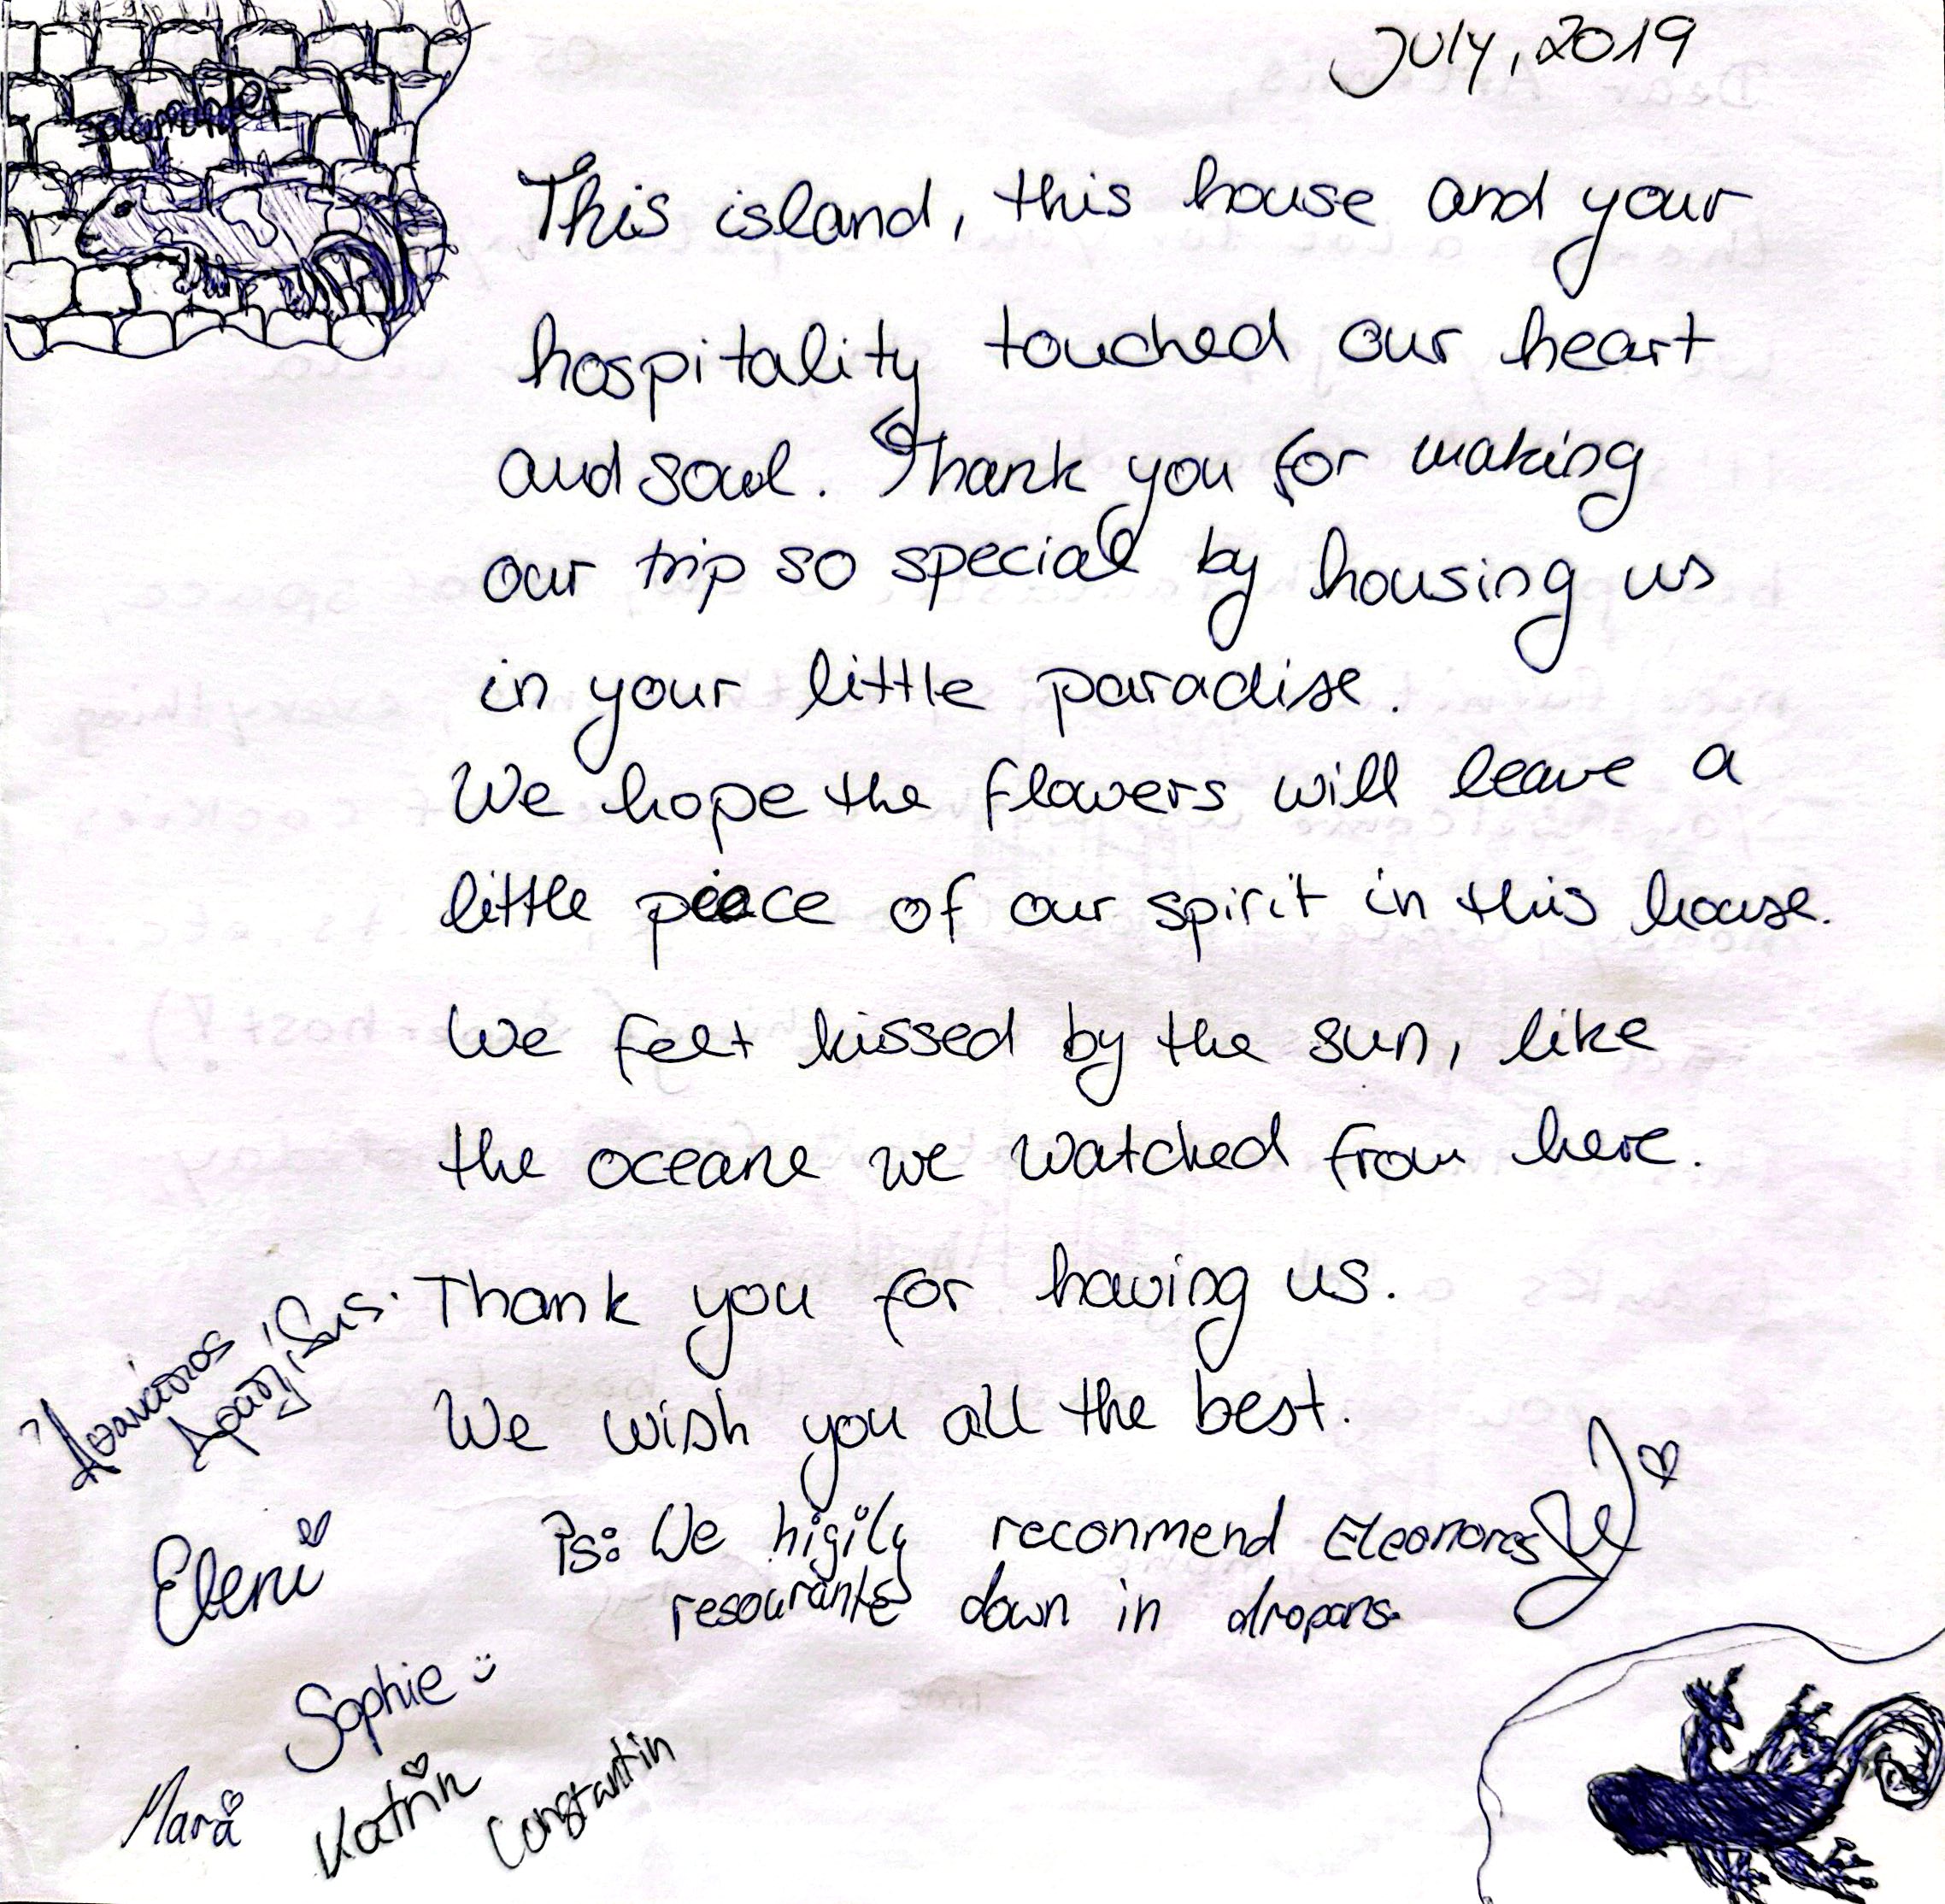 July, 2019
salamander
This island, this house and your
hospitality touched our heart
and soul. Thank you for making
our trip so special by housing us
in your little paradise.
We hope the flowers will leave a
little piece of our spirit in this house.
We felt kissed by the sun, like
the oceane we watched from here.
Thank you for having us.
We wish you all the best.
Ps: We higily reconmend Eleonores
resourante down in dropans.
Eleni
Sophie
Mara
Katrin
Constantin